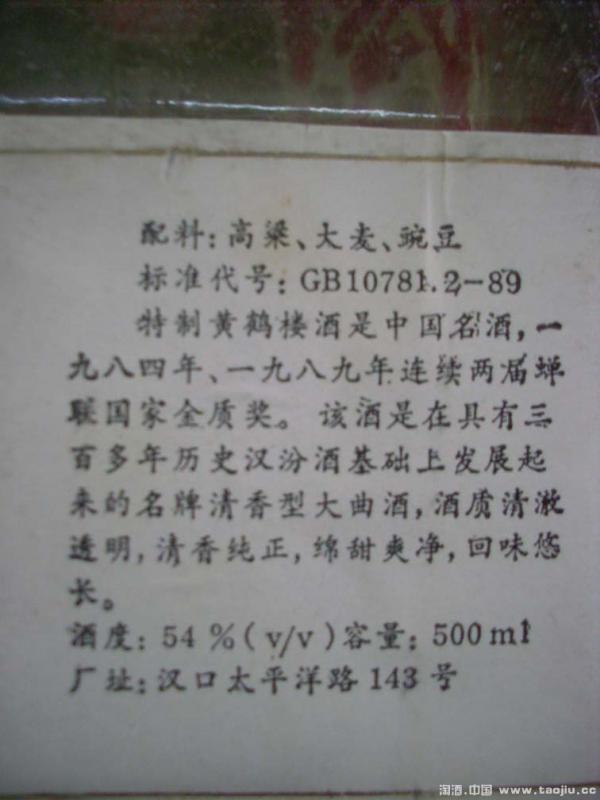 配料:高粱、大麦、豌豆
标准代号:GB10781.2-89
特制黄鹤楼酒是中国名酒,一
九八四年、一九八九年连续两届蝉
联国家金质奖。该酒是在具有三
百多年历史汉汾酒基础上发展起
来的名牌清香型大曲酒,酒质清澈
透明,清香纯正,绵甜爽净,回味悠
长。
酒度:54%(v/v)容量:500ml
厂址:汉口太平洋路143号
淘酒.中国 www.taojiu.cc